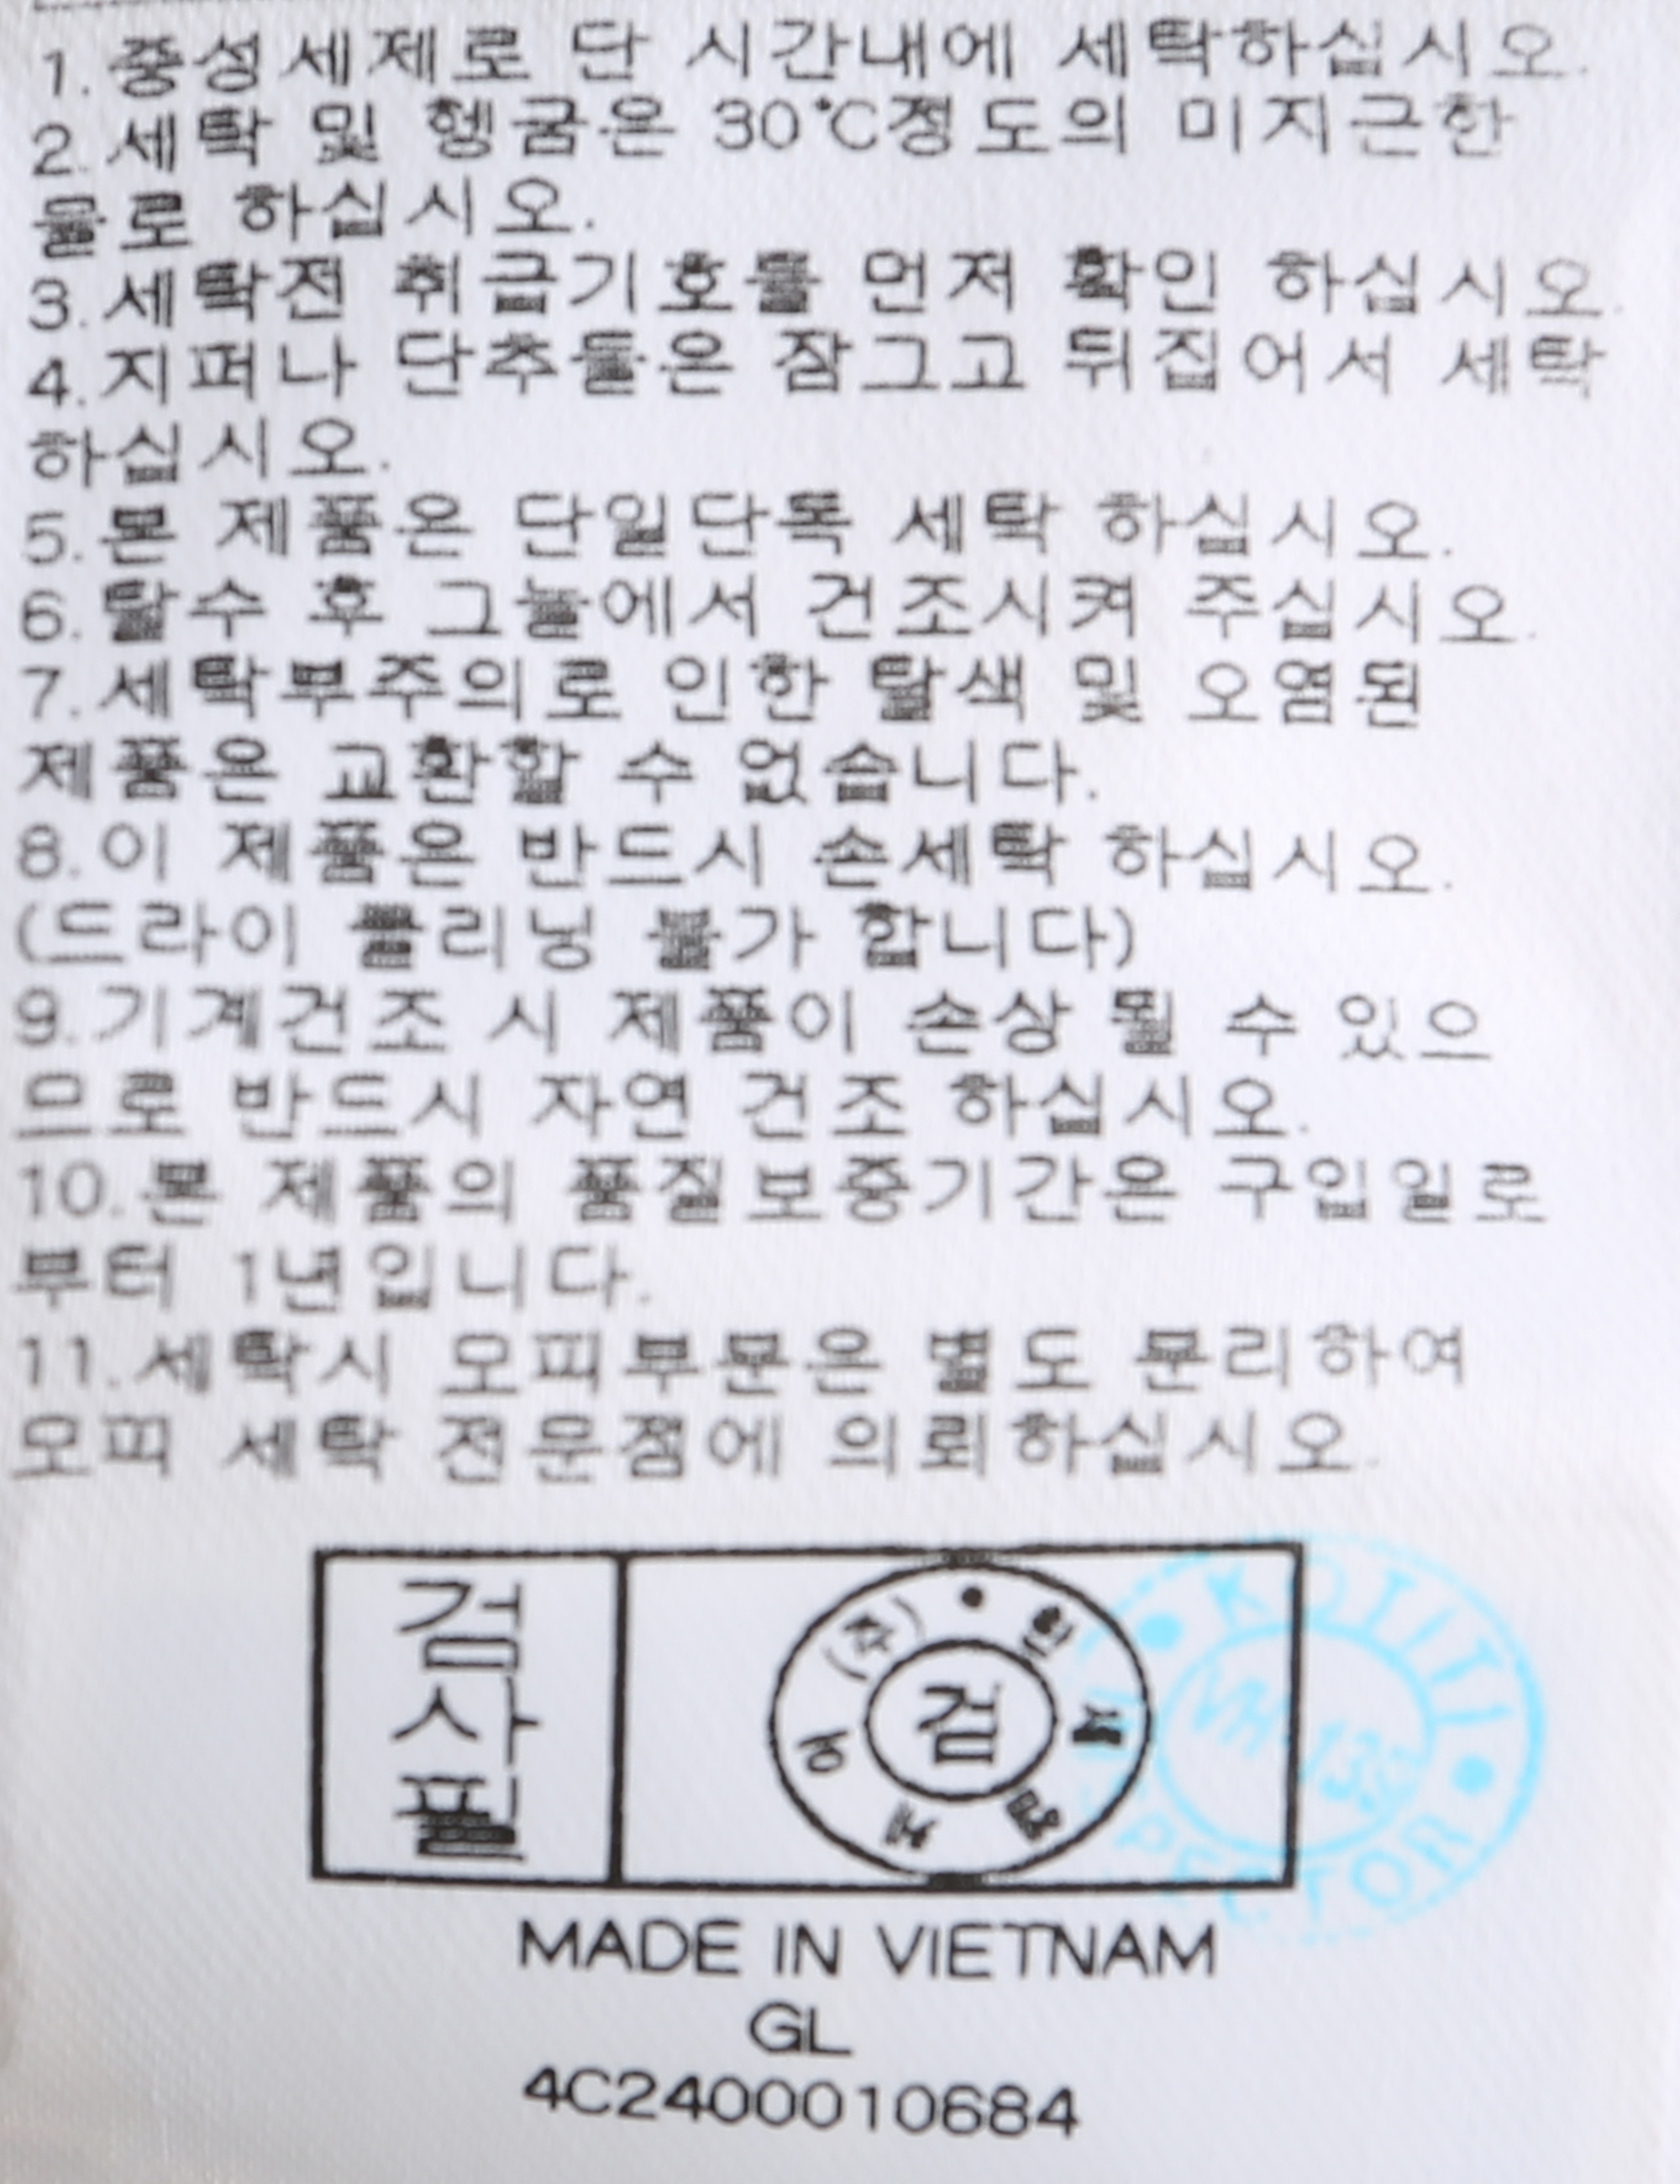 1.중성세제로 단 시간내에 세탁하십시오.
2.세탁 및 헹굼은 30℃정도의 미지근한
물로 하십시오.
3.세탁전 취급기호를 먼저 확인 하십시오.
4.지퍼나 단추들은 잠그고 뒤집어서 세탁
하십시오.
5.본 제품은 단일단독 세탁 하십시오.
6.탈수 후 그늘에서 건조시켜 주십시오.
7.세탁부주의로 인한 탈색 및 오염된
제품은 교환할 수 없습니다.
8.이 제품은 반드시 손세탁 하십시오.
(드라이 클리닝 불가 합니다)
9.기계건조 시 제품이 손상 될 수 있으
므로 반드시 자연 건조 하십시오.
10.본 제품의 품질보증기간은 구입일로
부터 1년입니다.
11.세탁시 모피부분은 별도 분리하여
모피 세탁 전문점에 의뢰하십시오.
검사필
(주)한세엠케이
검
KOTITI
VH-139
MADE IN VIETNAM
GL
4C2400010684